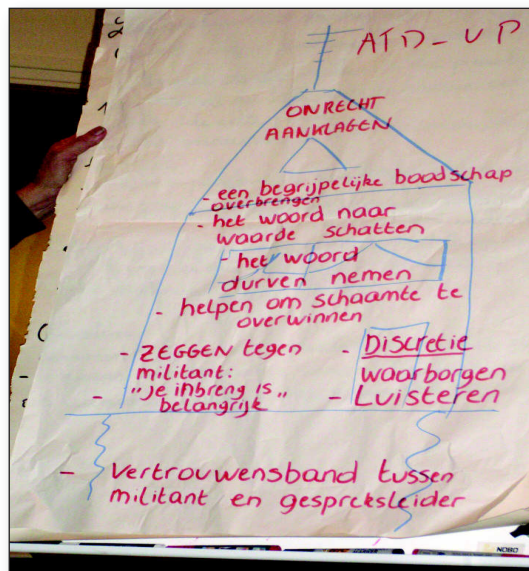 ATD-UP
ONRECHT
AANKLAGEN
- een begrijpelijke boodschap
overbrengen
- het woord naar
waarde schatten
- het woord
durven nemen
- helpen om schaamte te
overwinnen
- ZEGGEN tegen
militant:
- "je inbreng is"
belangrijk
- Discretie
waarborgen
- Luisteren
- Vertrouwensband tussen
militant en gespreksleider
NOBO